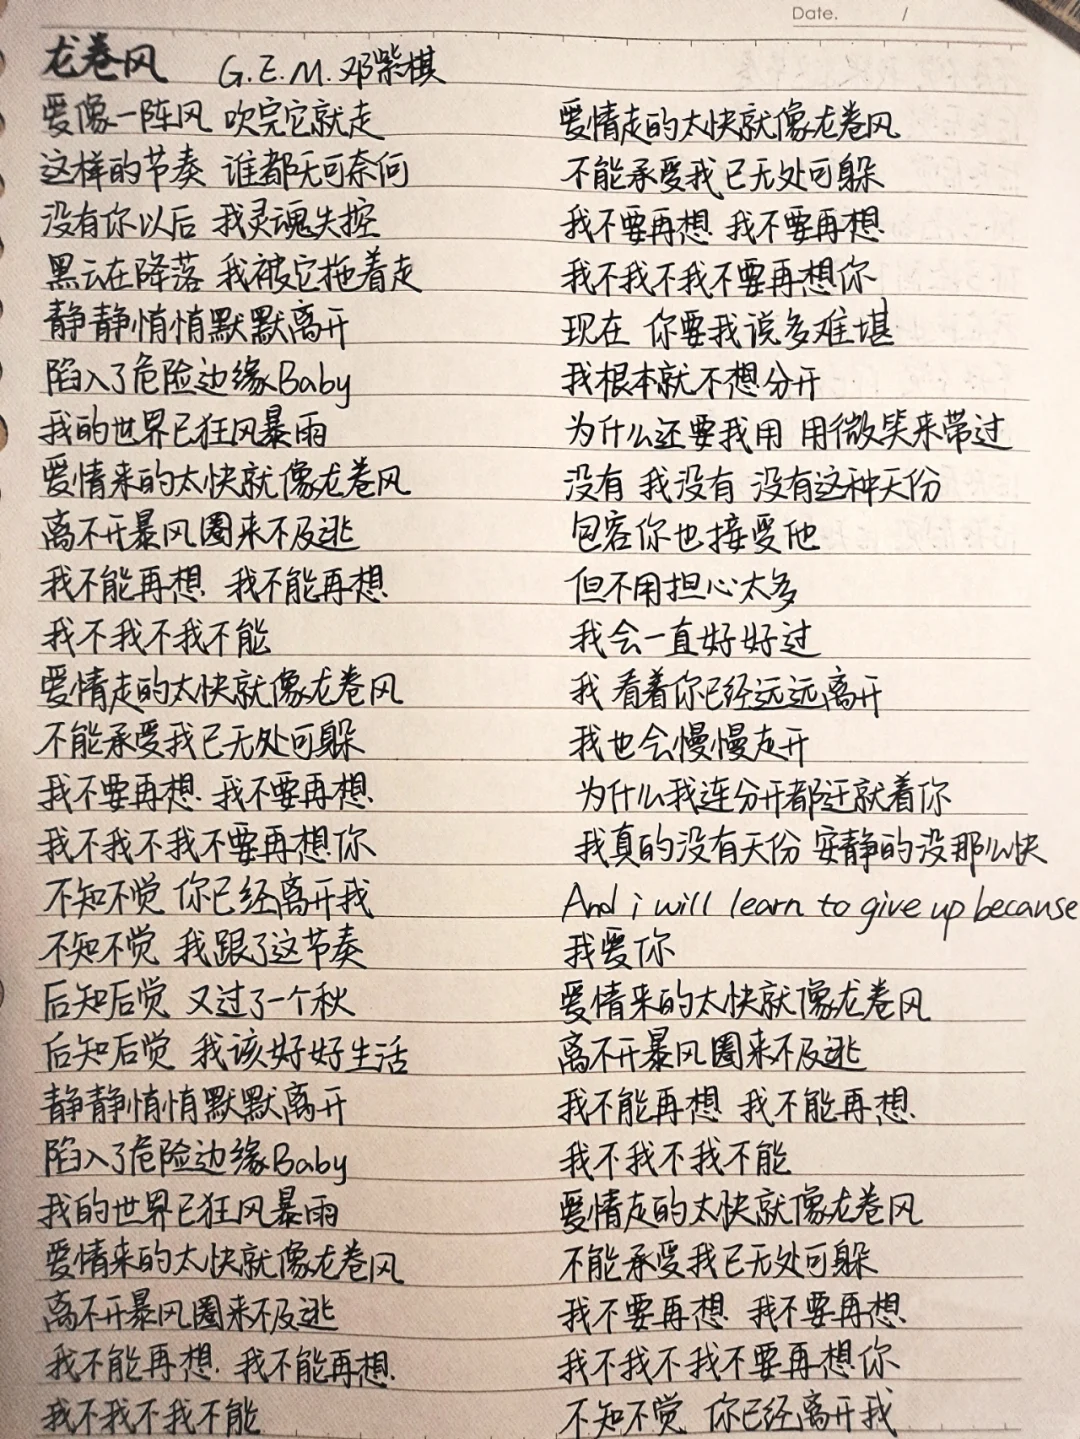 Date. /
龙卷风 G.E.M.邓紫棋
爱像一阵风 吹完它就走
这样的节奏 谁都无可奈何
没有你以后 我灵魂失控
黑云在降落 我被它拖着走
静静悄悄默默离开
陷入了危险边缘Baby
我的世界已狂风暴雨
爱情来的太快就像龙卷风
离不开暴风圈来不及逃
我不能再想 我不能再想
我不我不我不能
爱情走的太快就像龙卷风
不能承受我已无处可躲
我不要再想 我不要再想
我不我不我不要再想你
不知不觉 你已经离开我
不知不觉 我跟了这节奏
后知后觉 又过了一个秋
后知后觉 我该好好生活
静静悄悄默默离开
陷入了危险边缘Baby
我的世界已狂风暴雨
爱情来的太快就像龙卷风
离不开暴风圈来不及逃
我不能再想 我不能再想
我不我不我不能
爱情走的太快就像龙卷风
不能承受我已无处可躲
我不要再想 我不要再想
我不我不我不要再想你
现在 你要我说多难堪
我根本就不想分开
为什么还要我用 用微笑来带过
没有 我没有 没有这种天份
包容你也接受他
但不用担心太多
我会一直好好过
我 看着你已经远远离开
我也会慢慢走开
为什么我连分开都迁就着你
我真的没有天份 安静的没那么快
And i will learn to give up because
我爱你
爱情来的太快就像龙卷风
离不开暴风圈来不及逃
我不能再想 我不能再想
我不我不我不能
爱情走的太快就像龙卷风
不能承受我已无处可躲
我不要再想 我不要再想
我不我不我不要再想你
不知不觉 你已经离开我